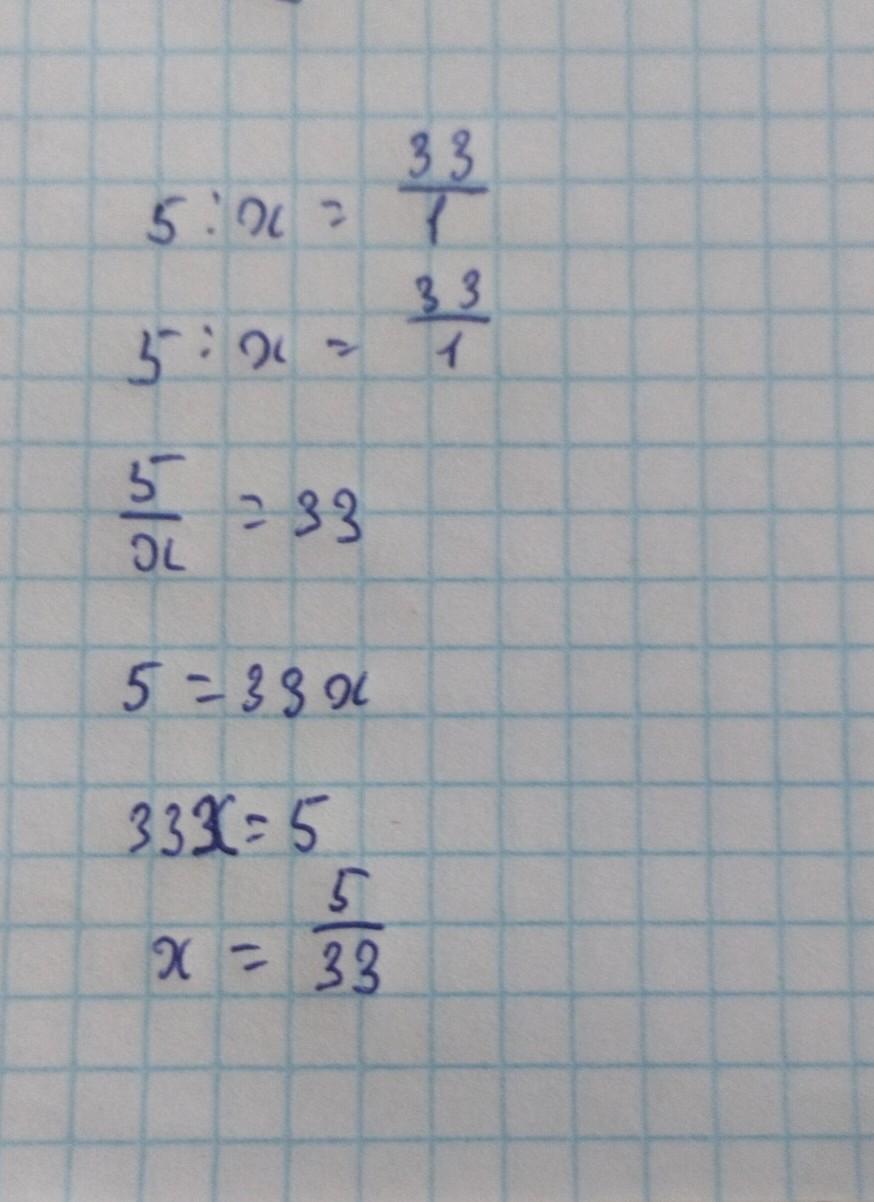 5 : x = 33/1
5 : x = 33/1
5/x = 33
5 = 33x
33x = 5
x = 5/33